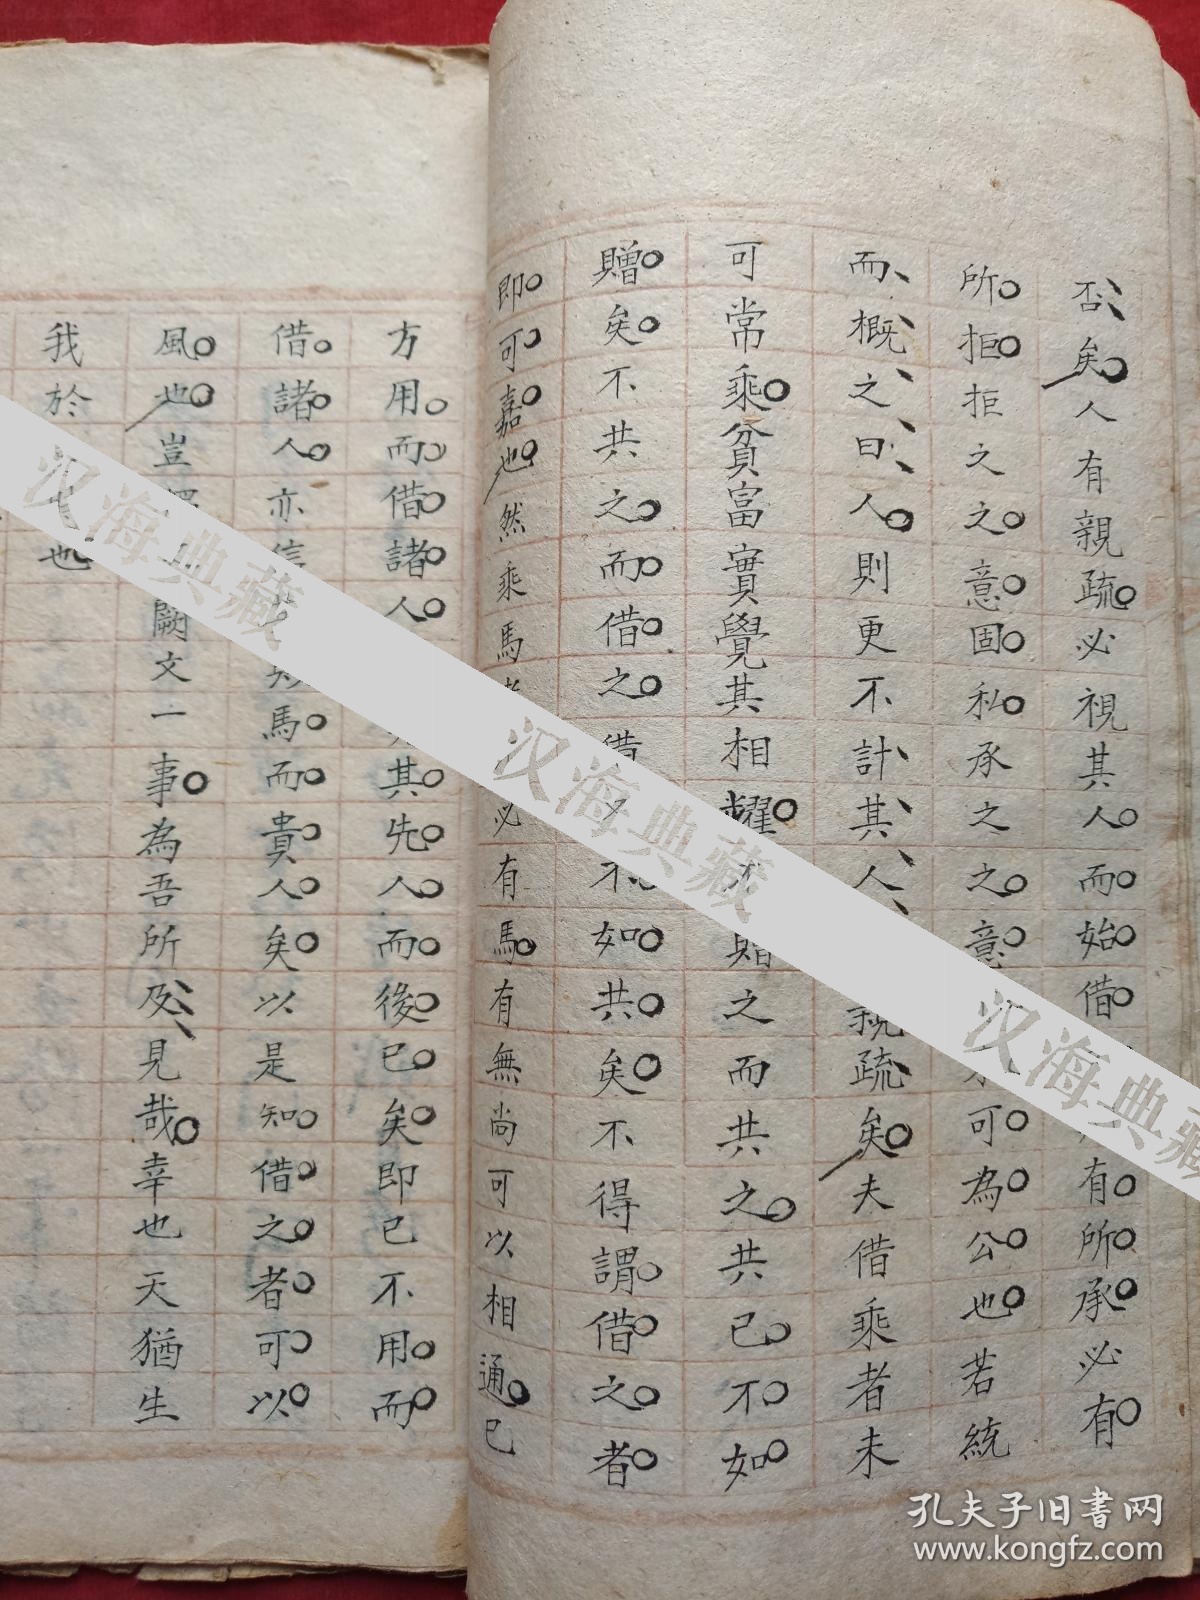 否矣人有親疏必視其人而始借有所承必有
所拒拒之之意固私承之之意可為公也若統
而概之曰人則更不計其人親疏矣夫借乘者未
可常乘貧富實覺其相耀贈之而共之共已不如
贈矣不共之而借之借不如共矣不得謂借之者
即可嘉也然乘馬必有馬有無尚可以相通已
方用而借諸人其先人而後已矣即已不用而
借諸人亦信馬而貴人矣以是知借之者可以
風也豈闕文一事為吾所及見哉幸也天猶生
我於也
汉海典藏
汉海典藏
汉海典藏
孔夫子旧书网
www.kongfz.com